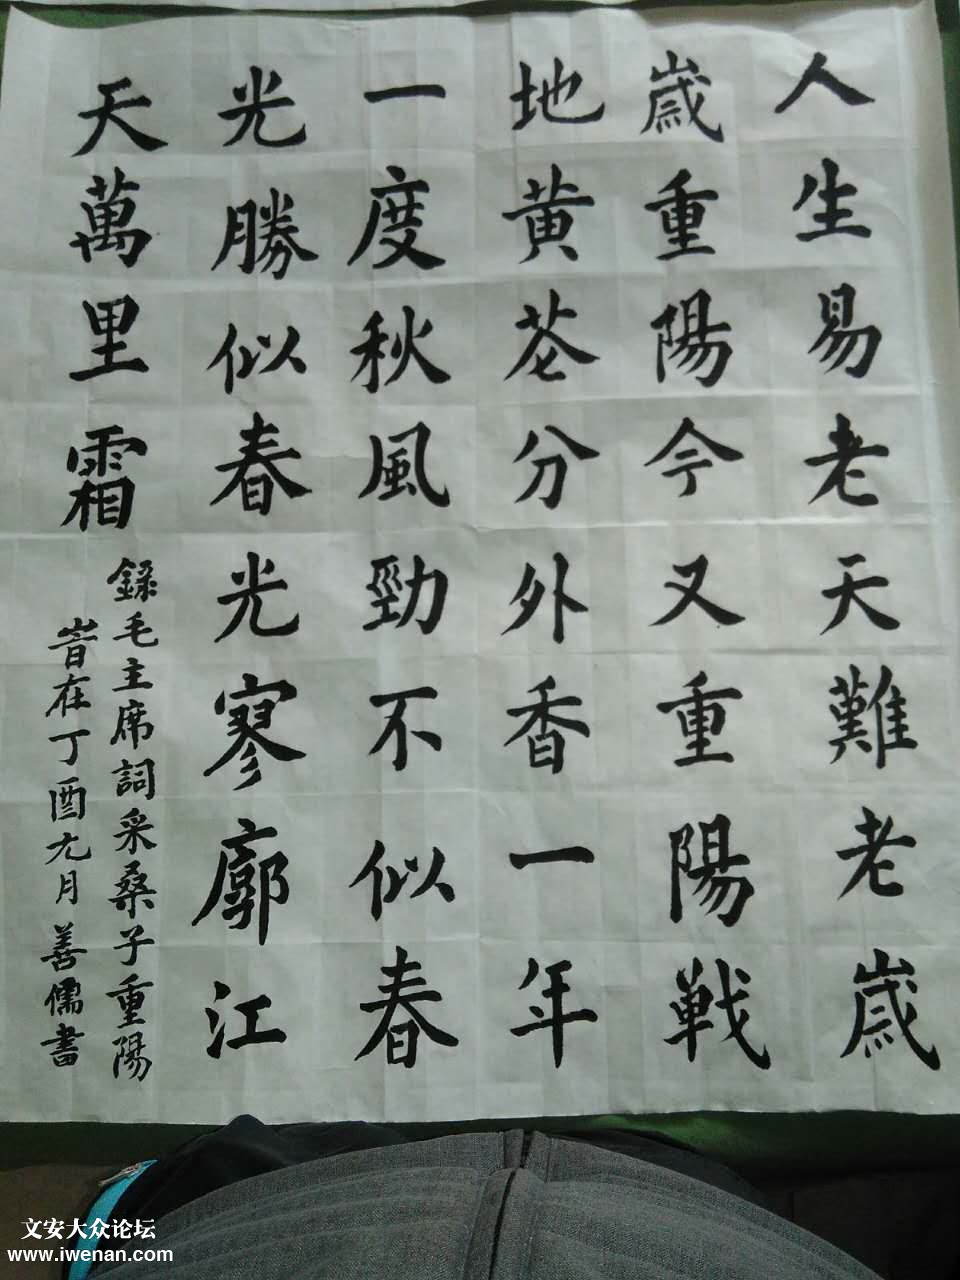 人生易老天難老歳
歳重陽今又重陽戦
地黄花分外香一年
一度秋風勁不似春
光勝似春光寥廓江
天萬里霜
錄毛主席詞采桑子重陽
旹在丁酉九月善儒書
文安大众论坛
www.iwenan.com